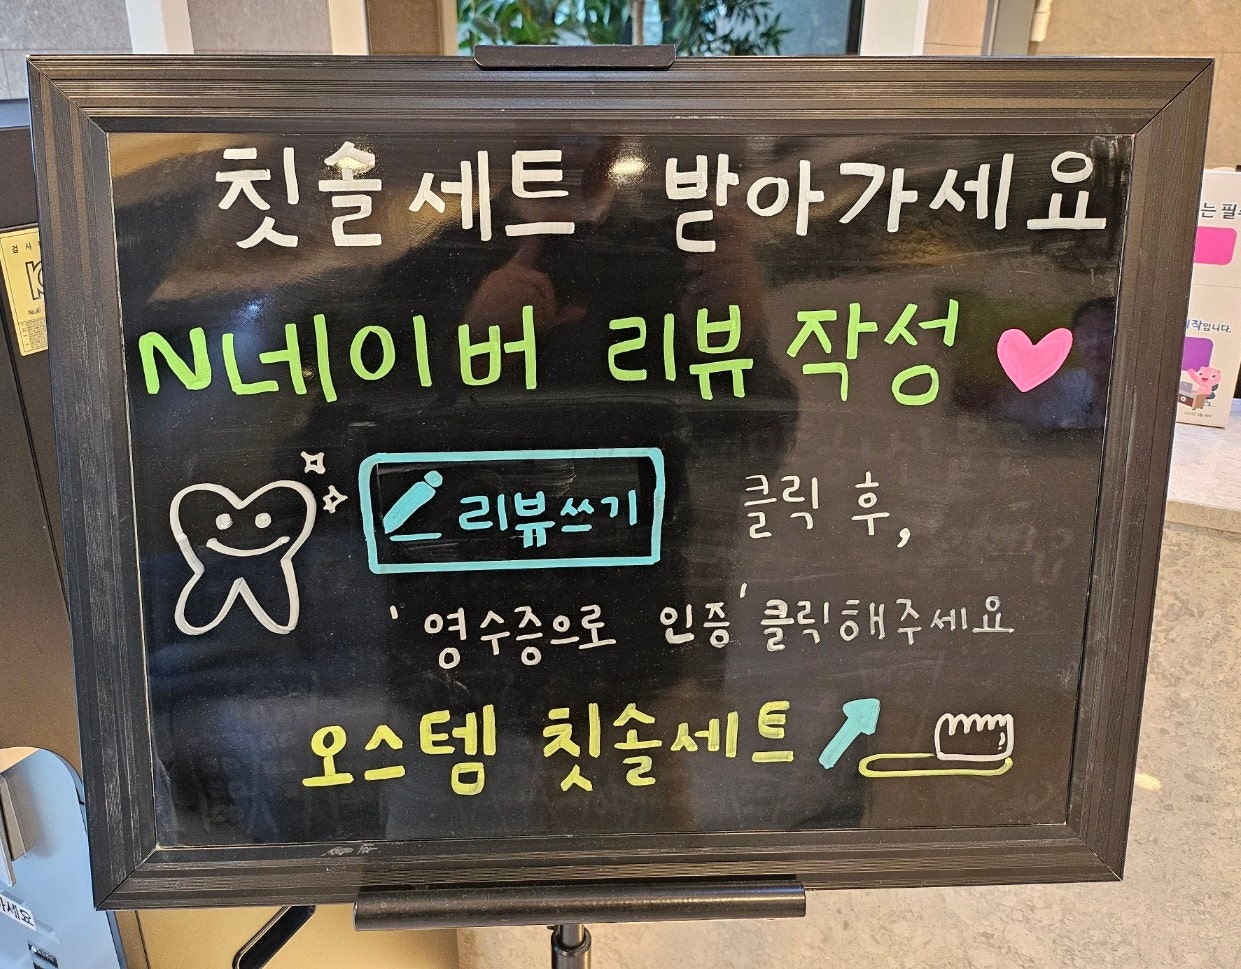 칫솔세트 받아가세요
N네이버 리뷰작성
리뷰쓰기 클릭 후,
'영수증으로 인증' 클릭해주세요
오스템 칫솔세트
검 사
는 필
작입니다.